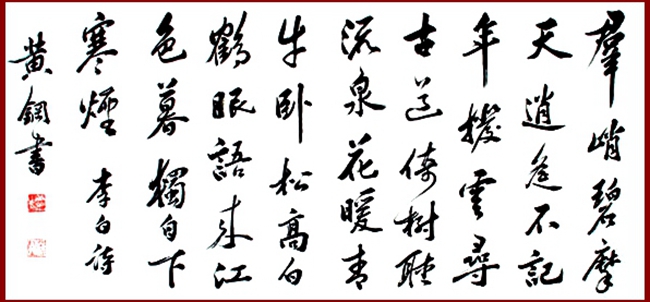 羣峭碧摩
天逍遥不記
年撥雲尋
古道倚樹聽
流泉花暖青
牛卧松高白
鶴眠語來江
色暮獨自下
寒煙 李白詩
黄鋼書